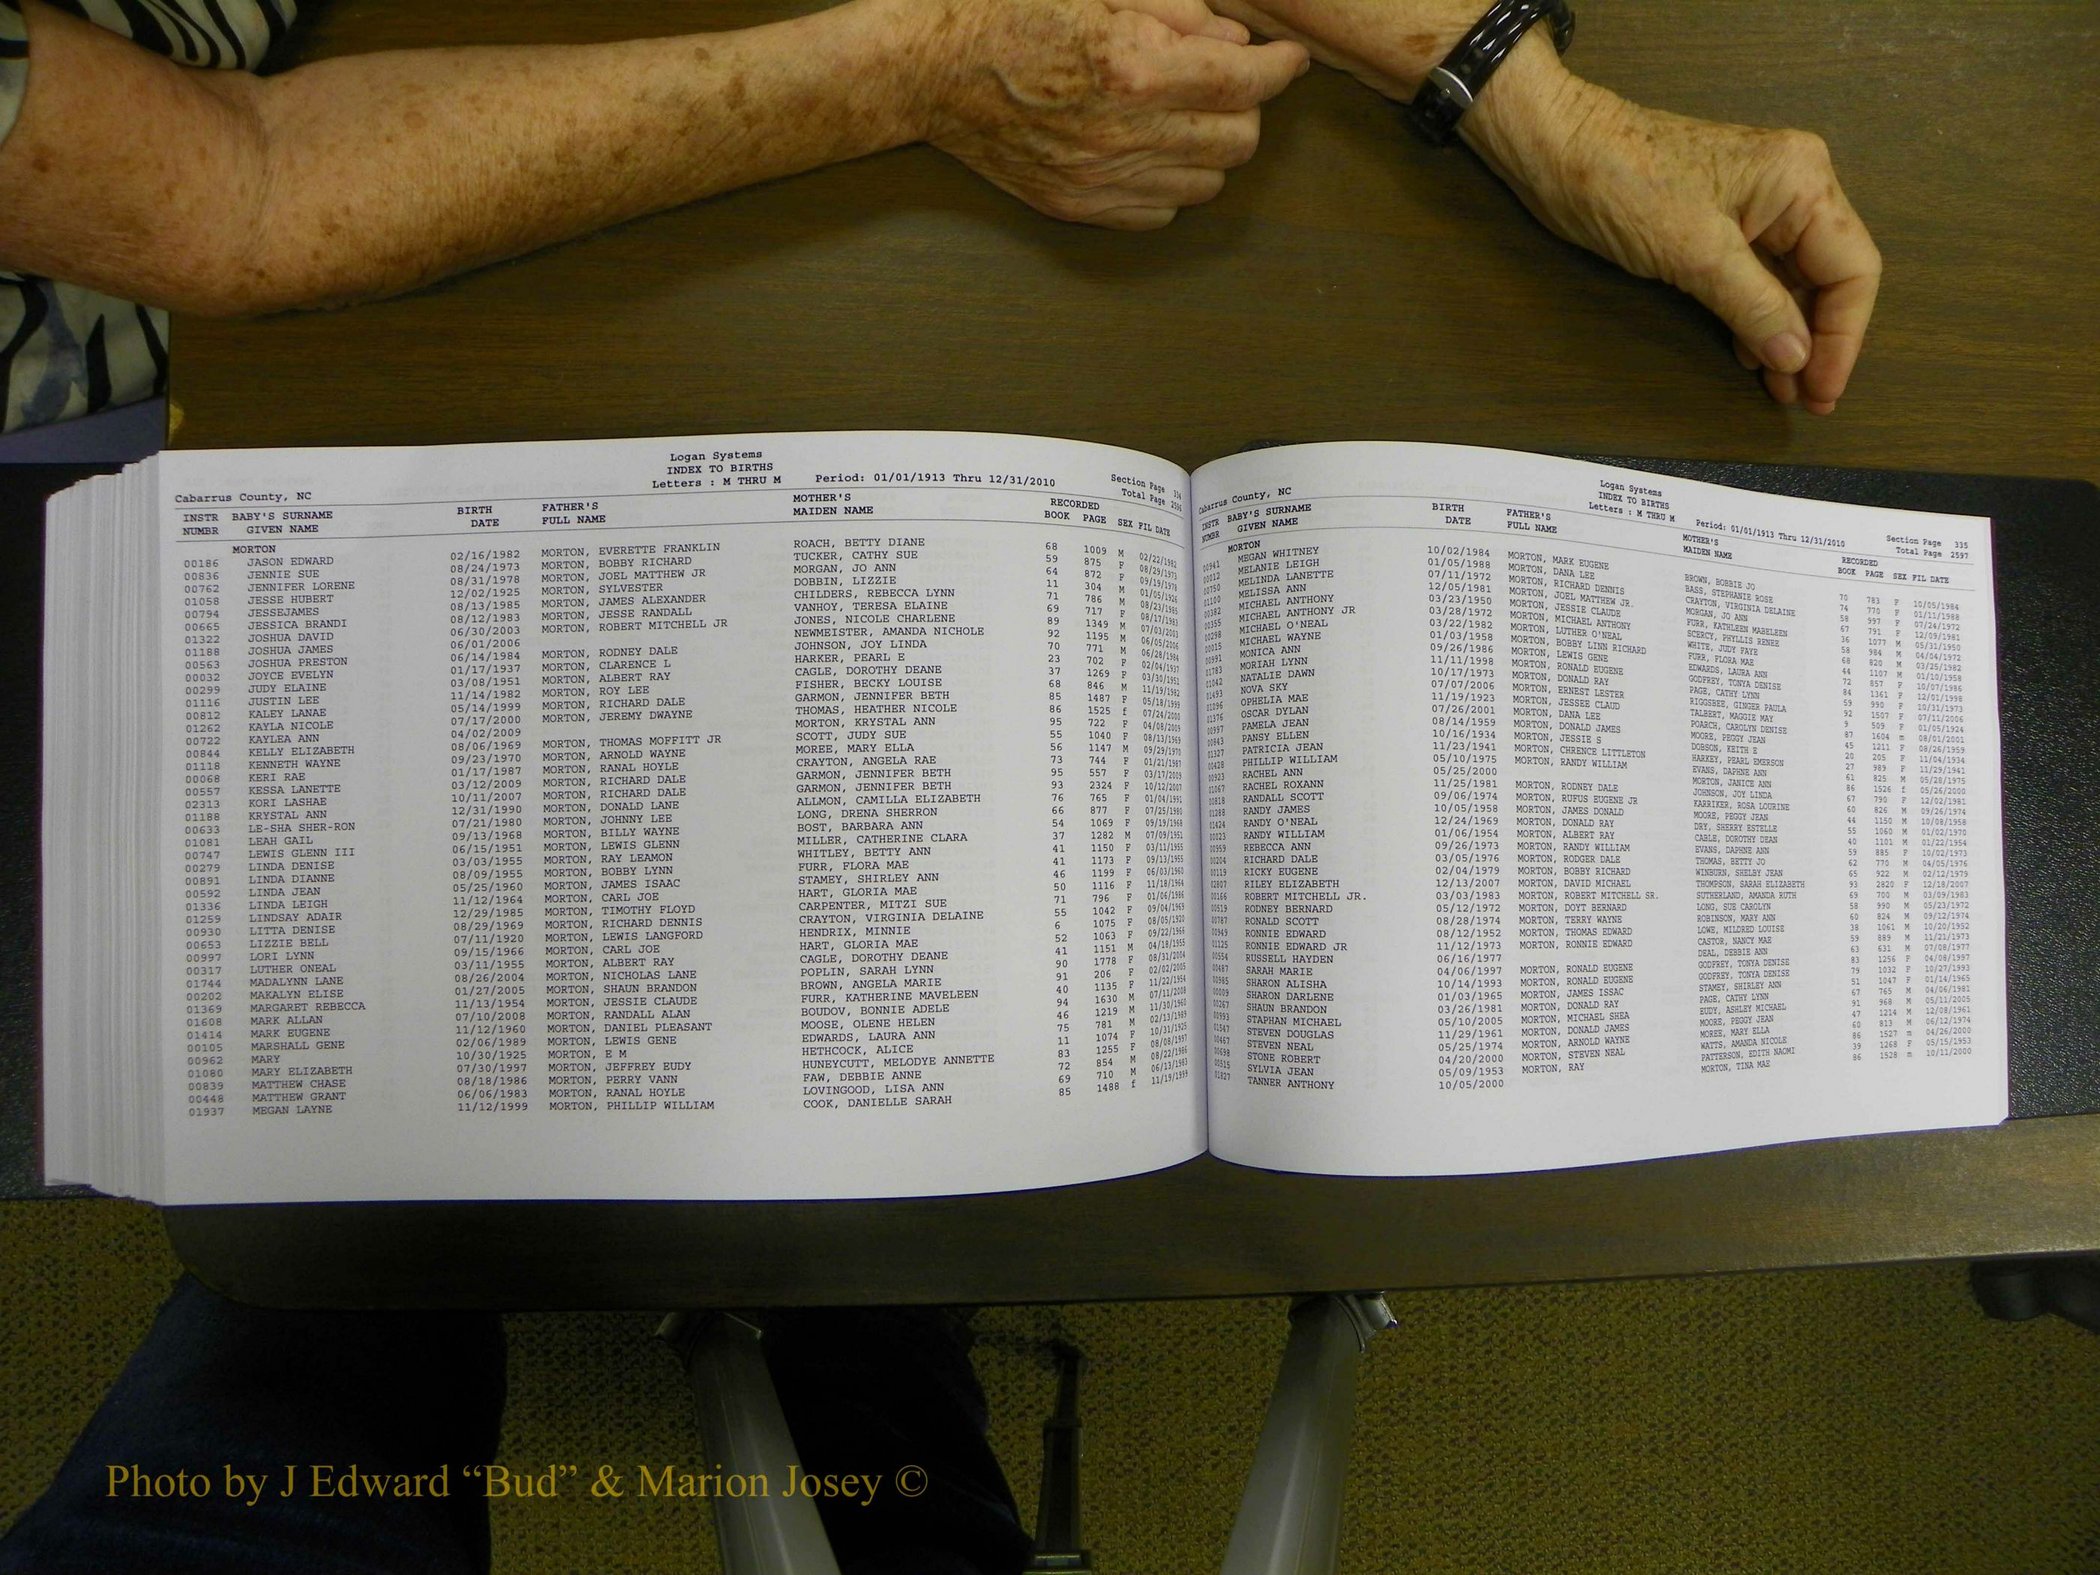 Logan Systems
INDEX TO BIRTHS
Cabarrus County, NC Letters : M THRU M Period: 01/01/1913 Thru 12/31/2010 Section Page
Total Page 2596
INSTR BABY'S SURNAME BIRTH FATHER'S MOTHER'S RECORDED
NUMBR GIVEN NAME DATE FULL NAME MAIDEN NAME BOOK PAGE SEX FIL DATE
MORTON
00186 JASON EDWARD 02/16/1982 MORTON, EVERETTE FRANKLIN ROACH, BETTY DIANE 68 1009 M 02/22/1982
00836 JENNIE SUE 08/24/1973 MORTON, BOBBY RICHARD TUCKER, CATHY SUE 59 875 F 08/29/1973
00762 JENNIFER LORENE 08/31/1978 MORTON, JOEL MATTHEW JR MORGAN, JO ANN 64 872 F 09/19/1978
01058 JESSE HUBERT 12/02/1925 MORTON, SYLVESTER DOBBIN, LIZZIE 11 304 M 01/05/1926
00794 JESSEJAMES 08/13/1985 MORTON, JAMES ALEXANDER CHILDERS, REBECCA LYNN 71 786 M 08/23/1985
00665 JESSICA BRANDI 08/12/1983 MORTON, JESSE RANDALL VANHOY, TERESA ELAINE 69 717 F 08/17/1983
01322 JOSHUA DAVID 06/30/2003 MORTON, ROBERT MITCHELL JR JONES, NICOLE CHARLENE 89 1349 M 07/03/2003
01188 JOSHUA JAMES 06/01/2006 NEWMEISTER, AMANDA NICHOLE 92 1195 M 06/05/2006
00563 JOSHUA PRESTON 06/14/1984 MORTON, RODNEY DALE JOHNSON, JOY LINDA 70 771 M 06/28/1984
00032 JOYCE EVELYN 01/17/1937 MORTON, CLARENCE L HARKER, PEARL E 23 702 F 02/04/1937
00299 JUDY ELAINE 03/08/1951 MORTON, ALBERT RAY CAGLE, DOROTHY DEANE 37 1269 F 03/30/1951
01116 JUSTIN LEE 11/14/1982 MORTON, ROY LEE FISHER, BECKY LOUISE 68 846 M 11/19/1982
00812 KALEY LANAE 05/14/1999 MORTON, RICHARD DALE GARMON, JENNIFER BETH 85 1487 F 05/18/1999
01262 KAYLA NICOLE 07/17/2000 MORTON, JEREMY DWAYNE THOMAS, HEATHER NICOLE 86 1525 f 07/24/2000
00722 KAYLEA ANN 04/02/2009 MORTON, KRYSTAL ANN 95 722 F 04/08/2009
00844 KELLY ELIZABETH 08/06/1969 MORTON, THOMAS MOFFITT JR SCOTT, JUDY SUE 55 1040 F 08/13/1969
01118 KENNETH WAYNE 09/23/1970 MORTON, ARNOLD WAYNE MOREE, MARY ELLA 56 1147 M 09/29/1970
00068 KERI RAE 01/17/1987 MORTON, RANAL HOYLE CRAYTON, ANGELA RAE 73 744 F 01/21/1987
00557 KESSA LANETTE 03/12/2009 MORTON, RICHARD DALE GARMON, JENNIFER BETH 95 557 F 03/17/2009
02313 KORI LASHAE 10/11/2007 MORTON, RICHARD DALE GARMON, JENNIFER BETH 93 2324 F 10/12/2007
01188 KRYSTAL ANN 12/31/1990 MORTON, DONALD LANE ALLMON, CAMILLA ELIZABETH 76 765 F 01/04/1991
00633 LE-SHA SHER-RON 07/21/1980 MORTON, JOHNNY LEE LONG, DRENA SHERRON 66 877 F 07/25/1980
01081 LEAH GAIL 09/13/1968 MORTON, BILLY WAYNE BOST, BARBARA ANN 54 1069 F 09/19/1968
00747 LEWIS GLENN III 06/15/1951 MORTON, LEWIS GLENN MILLER, CATHERINE CLARA 37 1282 M 07/09/1951
00279 LINDA DENISE 03/03/1955 MORTON, RAY LEAMON WHITLEY, BETTY ANN 41 1150 F 03/11/1955
00891 LINDA DIANNE 08/09/1955 MORTON, BOBBY LYNN FURR, FLORA MAE 41 1173 F 09/13/1955
00592 LINDA JEAN 05/25/1960 MORTON, JAMES ISAAC STAMEY, SHIRLEY ANN 46 1199 F 06/03/1960
01336 LINDA LEIGH 11/12/1964 MORTON, CARL JOE HART, GLORIA MAE 50 1116 F 11/18/1964
01259 LINDSAY ADAIR 12/29/1985 MORTON, TIMOTHY FLOYD CARPENTER, MITZI SUE 71 796 F 01/06/1986
00930 LITTA DENISE 08/29/1969 MORTON, RICHARD DENNIS CRAYTON, VIRGINIA DELAINE 55 1042 F 09/04/1969
00653 LIZZIE BELL 07/11/1920 MORTON, LEWIS LANGFORD HENDRIX, MINNIE 6 1075 F 08/05/1920
00997 LORI LYNN 09/15/1966 MORTON, CARL JOE HART, GLORIA MAE 52 1063 F 09/22/1966
00317 LUTHER ONEAL 03/11/1955 MORTON, ALBERT RAY CAGLE, DOROTHY DEANE 41 1151 M 04/18/1955
01744 MADALYNN LANE 08/26/2004 MORTON, NICHOLAS LANE POPLIN, SARAH LYNN 90 1778 F 08/31/2004
00202 MAKALYN ELISE 01/27/2005 MORTON, SHAUN BRANDON BROWN, ANGELA MARIE 91 206 F 02/02/2005
01369 MARGARET REBECCA 11/13/1954 MORTON, JESSIE CLAUDE FURR, KATHERINE MAVELEEN 40 1135 F 11/22/1954
01608 MARK ALLAN 07/10/2008 MORTON, RANDALL ALAN BOUDOV, BONNIE ADELE 94 1630 M 07/11/2008
01414 MARK EUGENE 11/12/1960 MORTON, DANIEL PLEASANT MOOSE, OLENE HELEN 46 1219 M 11/30/1960
00105 MARSHALL GENE 02/06/1989 MORTON, LEWIS GENE EDWARDS, LAURA ANN 75 781 M 02/13/1989
00962 MARY 10/30/1925 MORTON, E M HETHCOCK, ALICE 11 1074 F 10/31/1925
01080 MARY ELIZABETH 07/30/1997 MORTON, JEFFREY EUDY HUNEYCUTT, MELODYE ANNETTE 83 1255 F 08/08/1997
00839 MATTHEW CHASE 08/18/1986 MORTON, PERRY VANN FAW, DEBBIE ANNE 72 854 M 08/22/1986
00448 MATTHEW GRANT 06/06/1983 MORTON, RANAL HOYLE LOVINGOOD, LISA ANN 69 710 M 06/13/1983
01937 MEGAN LAYNE 11/12/1999 MORTON, PHILLIP WILLIAM COOK, DANIELLE SARAH 85 1488 f 11/19/1999
Logan Systems
INDEX TO BIRTHS
Cabarrus County, NC Letters : M THRU M Period: 01/01/1913 Thru 12/31/2010 Section Page 335
Total Page 2597
INSTR BABY'S SURNAME BIRTH FATHER'S MOTHER'S RECORDED
NUMBR GIVEN NAME DATE FULL NAME MAIDEN NAME BOOK PAGE SEX FIL DATE
MORTON
00941 MEGAN WHITNEY 10/02/1984 MORTON, MARK EUGENE BROWN, BOBBIE JO 70 783 F 10/05/1984
00012 MELANIE LEIGH 01/05/1988 MORTON, DANA LEE BASS, STEPHANIE ROSE 74 770 F 01/11/1988
00750 MELINDA LANETTE 07/11/1972 MORTON, RICHARD DENNIS CRAYTON, VIRGINIA DELAINE 58 997 F 07/24/1972
01100 MELISSA ANN 12/05/1981 MORTON, JOEL MATTHEW JR. MORGAN, JO ANN 67 791 F 12/09/1981
00382 MICHAEL ANTHONY 03/23/1950 MORTON, JESSIE CLAUDE FURR, KATHLEEN MABELEEN 36 1077 M 05/31/1950
00355 MICHAEL ANTHONY JR 03/28/1972 MORTON, MICHAEL ANTHONY SCERCY, PHYLLIS RENEE 58 984 M 04/04/1972
00298 MICHAEL O'NEAL 03/22/1982 MORTON, LUTHER O'NEAL WHITE, JUDY FAYE 68 820 M 03/25/1982
00015 MICHAEL WAYNE 01/03/1958 MORTON, BOBBY LINN RICHARD FURR, FLORA MAE 44 1107 M 01/10/1958
00991 MONICA ANN 09/26/1986 MORTON, LEWIS GENE EDWARDS, LAURA ANN 72 857 F 10/07/1986
01783 MORIAH LYNN 11/11/1998 MORTON, RONALD EUGENE GODFREY, TONYA DENISE 84 1361 F 12/01/1998
01042 NATALIE DAWN 10/17/1973 MORTON, DONALD RAY PAGE, CATHY LYNN 59 990 F 10/31/1973
01493 NOVA SKY 07/07/2006 MORTON, ERNEST LESTER RIGGSBEE, GINGER PAULA 92 1507 F 07/11/2006
01096 OPHELIA MAE 11/19/1923 MORTON, JESSEE CLAUD TALBERT, MAGGIE MAY 9 509 F 01/05/1924
01376 OSCAR DYLAN 07/26/2001 MORTON, DANA LEE POARCH, CAROLYN DENISE 87 1604 m 08/01/2001
00997 PAMELA JEAN 08/14/1959 MORTON, DONALD JAMES MOORE, PEGGY JEAN 45 1211 F 08/26/1959
00843 PANSY ELLEN 10/16/1934 MORTON, JESSIE S DOBSON, KEITH E 20 205 F 11/04/1934
01327 PATRICIA JEAN 11/23/1941 MORTON, CHRENCE LITTLETON HARKEY, PEARL EMERSON 27 989 F 11/29/1941
00428 PHILLIP WILLIAM 05/10/1975 MORTON, RANDY WILLIAM EVANS, DAPHNE ANN 61 825 M 05/20/1975
00923 RACHEL ANN 05/25/2000 MORTON, JANICE ANN 86 1526 f 05/26/2000
01067 RACHEL ROXANN 11/25/1981 MORTON, RODNEY DALE JOHNSON, JOY LINDA 67 790 F 12/02/1981
00818 RANDALL SCOTT 09/06/1974 MORTON, RUFUS EUGENE JR KARRIKER, ROSA LOURINE 60 826 M 09/26/1974
01288 RANDY JAMES 10/05/1958 MORTON, JAMES DONALD MOORE, PEGGY JEAN 44 1150 M 10/08/1958
01424 RANDY O'NEAL 12/24/1969 MORTON, DONALD RAY DRY, SHERRY ESTELLE 55 1060 M 01/02/1970
00023 RANDY WILLIAM 01/06/1954 MORTON, ALBERT RAY CABLE, DOROTHY DEAN 40 1101 M 01/22/1954
00959 REBECCA ANN 09/26/1973 MORTON, RANDY WILLIAM EVANS, DAPHNE ANN 59 885 F 10/02/1973
00204 RICHARD DALE 03/05/1976 MORTON, RODGER DALE THOMAS, BETTY JO 62 770 M 04/05/1976
00119 RICKY EUGENE 02/04/1979 MORTON, BOBBY RICHARD WINBURN, SHELBY JEAN 65 922 M 02/12/1979
02807 RILEY ELIZABETH 12/13/2007 MORTON, DAVID MICHAEL THOMPSON, SARAH ELIZABETH 93 2820 F 12/18/2007
00166 ROBERT MITCHELL JR. 03/03/1983 MORTON, ROBERT MITCHELL SR. SUTHERLAND, AMANDA RUTH 69 700 M 03/09/1983
00519 RODNEY BERNARD 05/12/1972 MORTON, DOYT BERNARD LONG, SUE CAROLYN 58 990 M 05/23/1972
00787 RONALD SCOTT 08/28/1974 MORTON, TERRY WAYNE ROBINSON, MARY ANN 60 824 M 09/12/1974
00949 RONNIE EDWARD 08/12/1952 MORTON, THOMAS EDWARD LOWE, MILDRED LOUISE 38 1061 M 10/20/1952
01125 RONNIE EDWARD JR 11/12/1973 MORTON, RONNIE EDWARD CASTOR, NANCY MAE 59 889 M 11/21/1973
00554 RUSSELL HAYDEN 06/16/1977 DEAL, DEBBIE ANN 63 631 M 07/08/1977
00487 SARAH MARIE 04/06/1997 MORTON, RONALD EUGENE GODFREY, TONYA DENISE 83 1256 F 04/08/1997
00985 SHARON ALISHA 10/14/1993 MORTON, RONALD EUGENE GODFREY, TONYA DENISE 79 1032 F 10/27/1993
00009 SHARON DARLENE 01/03/1965 MORTON, JAMES ISSAC STAMEY, SHIRLEY ANN 51 1047 F 01/14/1965
00267 SHAUN BRANDON 03/26/1981 MORTON, DONALD RAY PAGE, CATHY LYNN 67 765 M 04/06/1981
00993 STAPHAN MICHAEL 05/10/2005 MORTON, MICHAEL SHEA EUDY, ASHLEY MICHAEL 91 968 M 05/11/2005
01547 STEVEN DOUGLAS 11/29/1961 MORTON, DONALD JAMES MOORE, PEGGY JEAN 47 1214 M 12/08/1961
00467 STEVEN NEAL 05/25/1974 MORTON, ARNOLD WAYNE MOREE, MARY ELLA 60 813 M 06/12/1974
00598 STONE ROBERT 04/20/2000 MORTON, STEVEN NEAL WATTS, AMANDA NICOLE 86 1527 m 04/26/2000
00515 SYLVIA JEAN 05/09/1953 MORTON, RAY PATTERSON, EDITH NAOMI 39 1268 F 05/15/1953
01827 TANNER ANTHONY 10/05/2000 MORTON, TINA MAE 86 1528 m 10/11/2000
Photo by J Edward “Bud” & Marion Josey ©